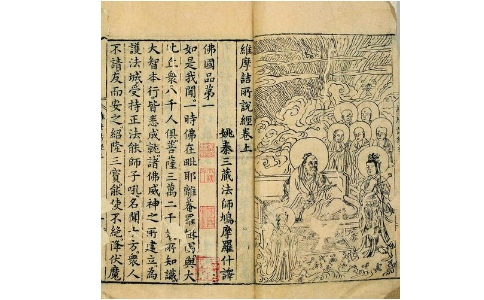 維摩詰所說經卷上
姚秦三藏法師鳩摩羅什譯
佛國品第一
如是我聞一時佛在毗耶離菴羅樹園與大
比丘衆八千人俱菩薩三萬二千所知識
大智本行皆悉成就諸佛威神之所建立為
護法城受持正法能師子吼名聞十方衆人
不請友而安之紹隆三寶能使不絕降伏魔